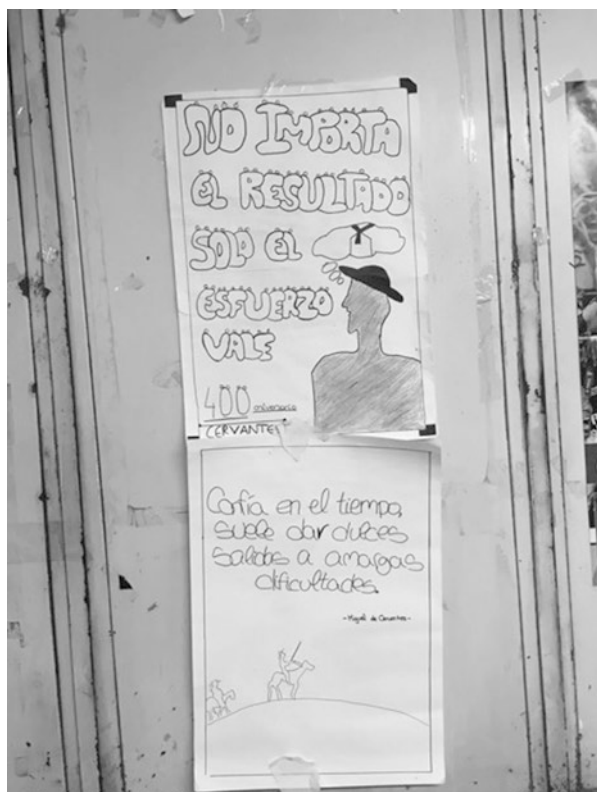 NO IMPORTA
EL RESULTADO
SOLO EL
ESFUERZO
VALE
400 aniversario
CERVANTES
Confía en el tiempo,
suele dar dulces
salidas a amargas
dificultades.
-Miguel de Cervantes-